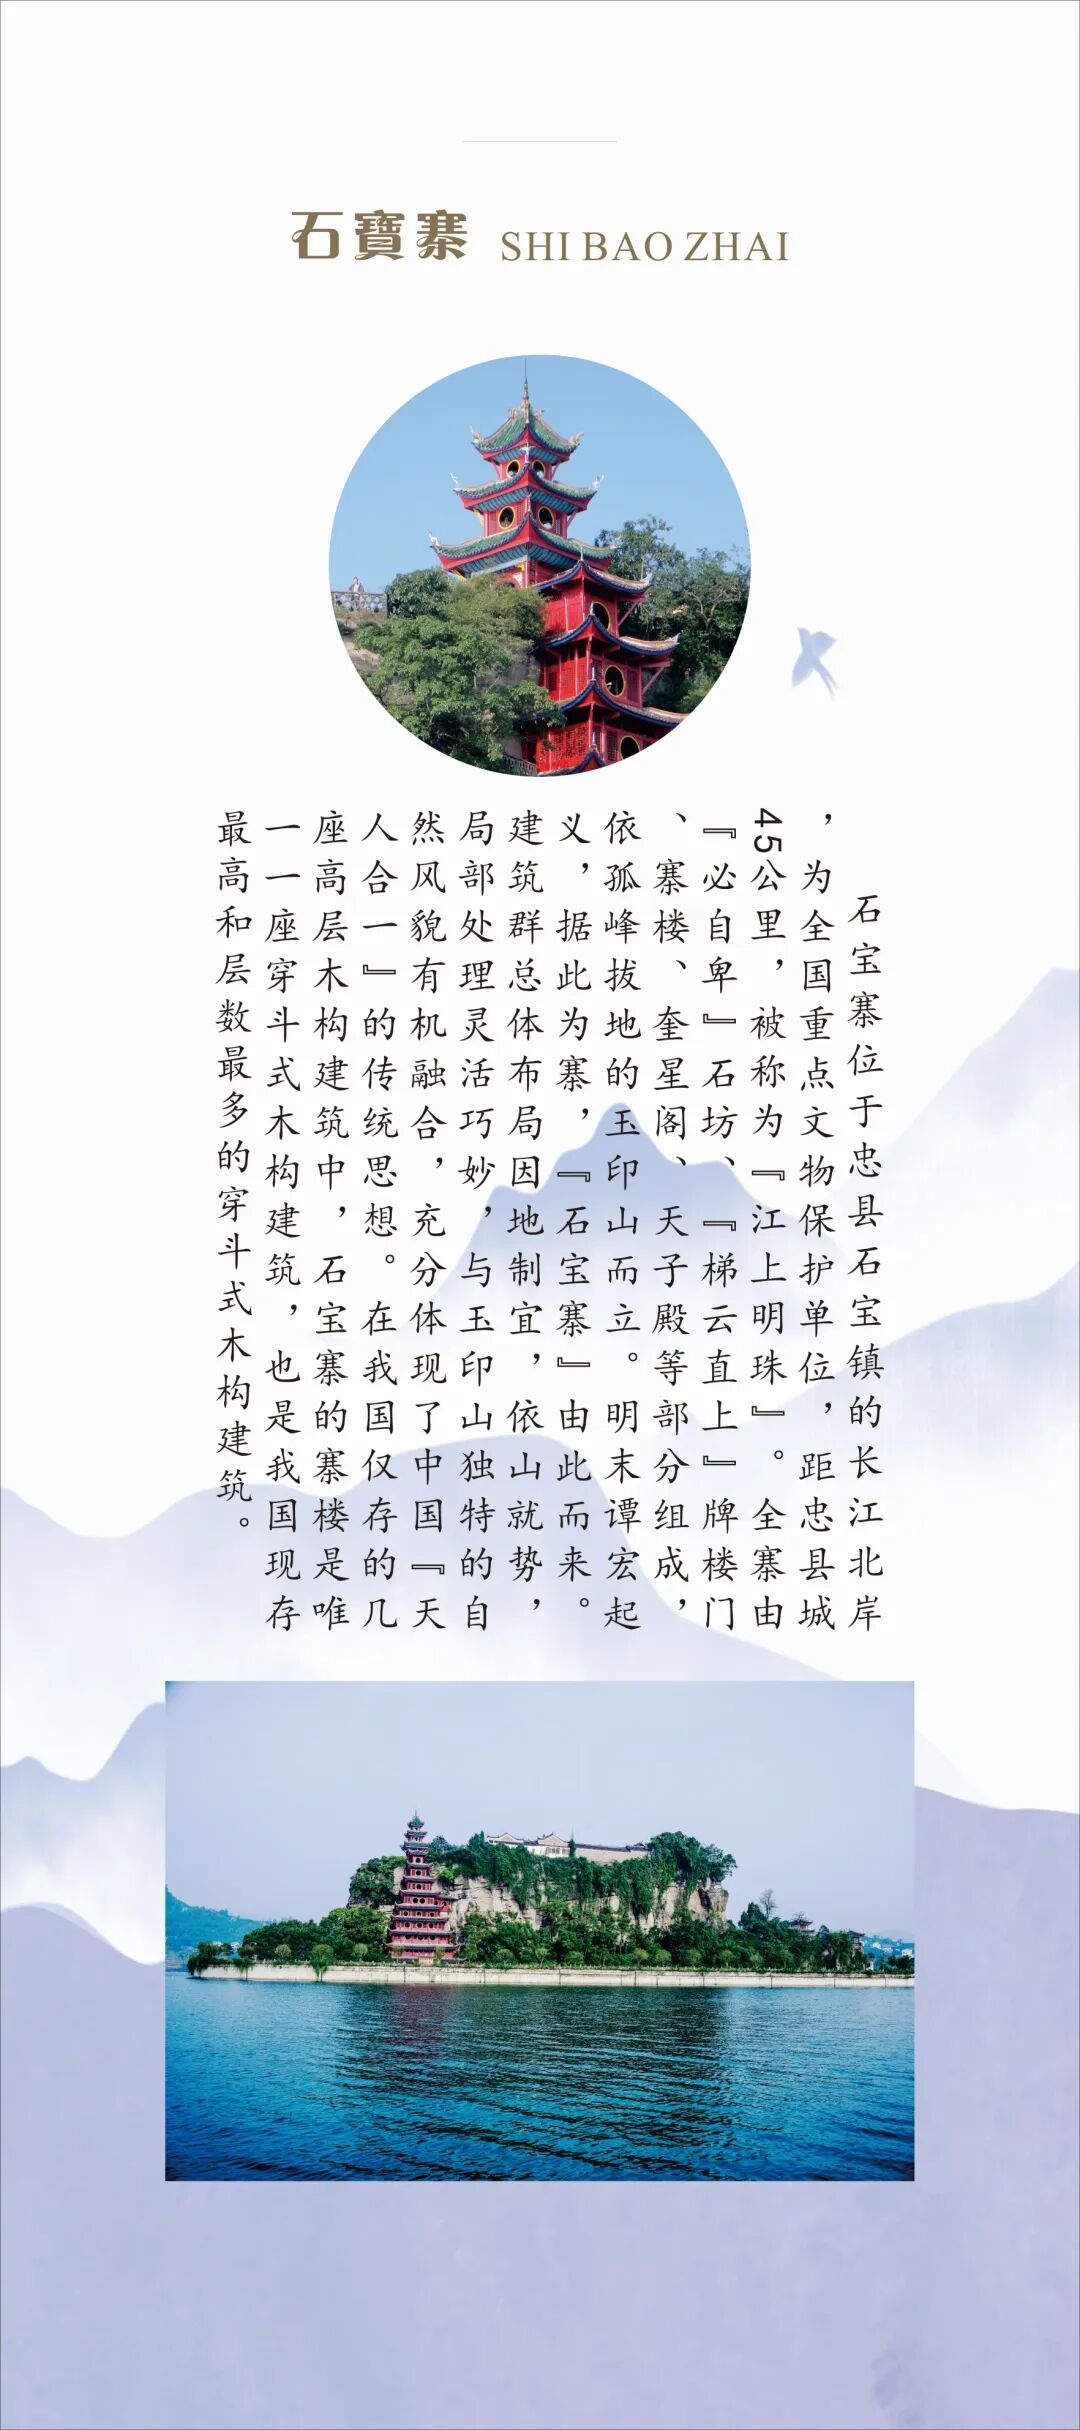 石寶寨 SHI BAO ZHAI
石宝寨位于忠县石宝镇的长江北岸
，为全国重点文物保护单位，距忠县城
45公里，被称为『江上明珠』。全寨由
『必自卑』石坊、『梯云直上』牌楼门
、寨楼、奎星阁、天子殿等部分组成，
依孤峰拔地的玉印山而立。明末谭宏起
义，据此为寨，『石宝寨』由此而来。
建筑群总体布局因地制宜，依山就势，
局部处理灵活巧妙，与玉印山独特的自
然风貌有机融合，充分体现了中国『天
人合一』的传统思想。在我国仅存的几
座高层木构建筑中，石宝寨的寨楼是唯
一一座穿斗式木构建筑，也是我国现存
最高和层数最多的穿斗式木构建筑。